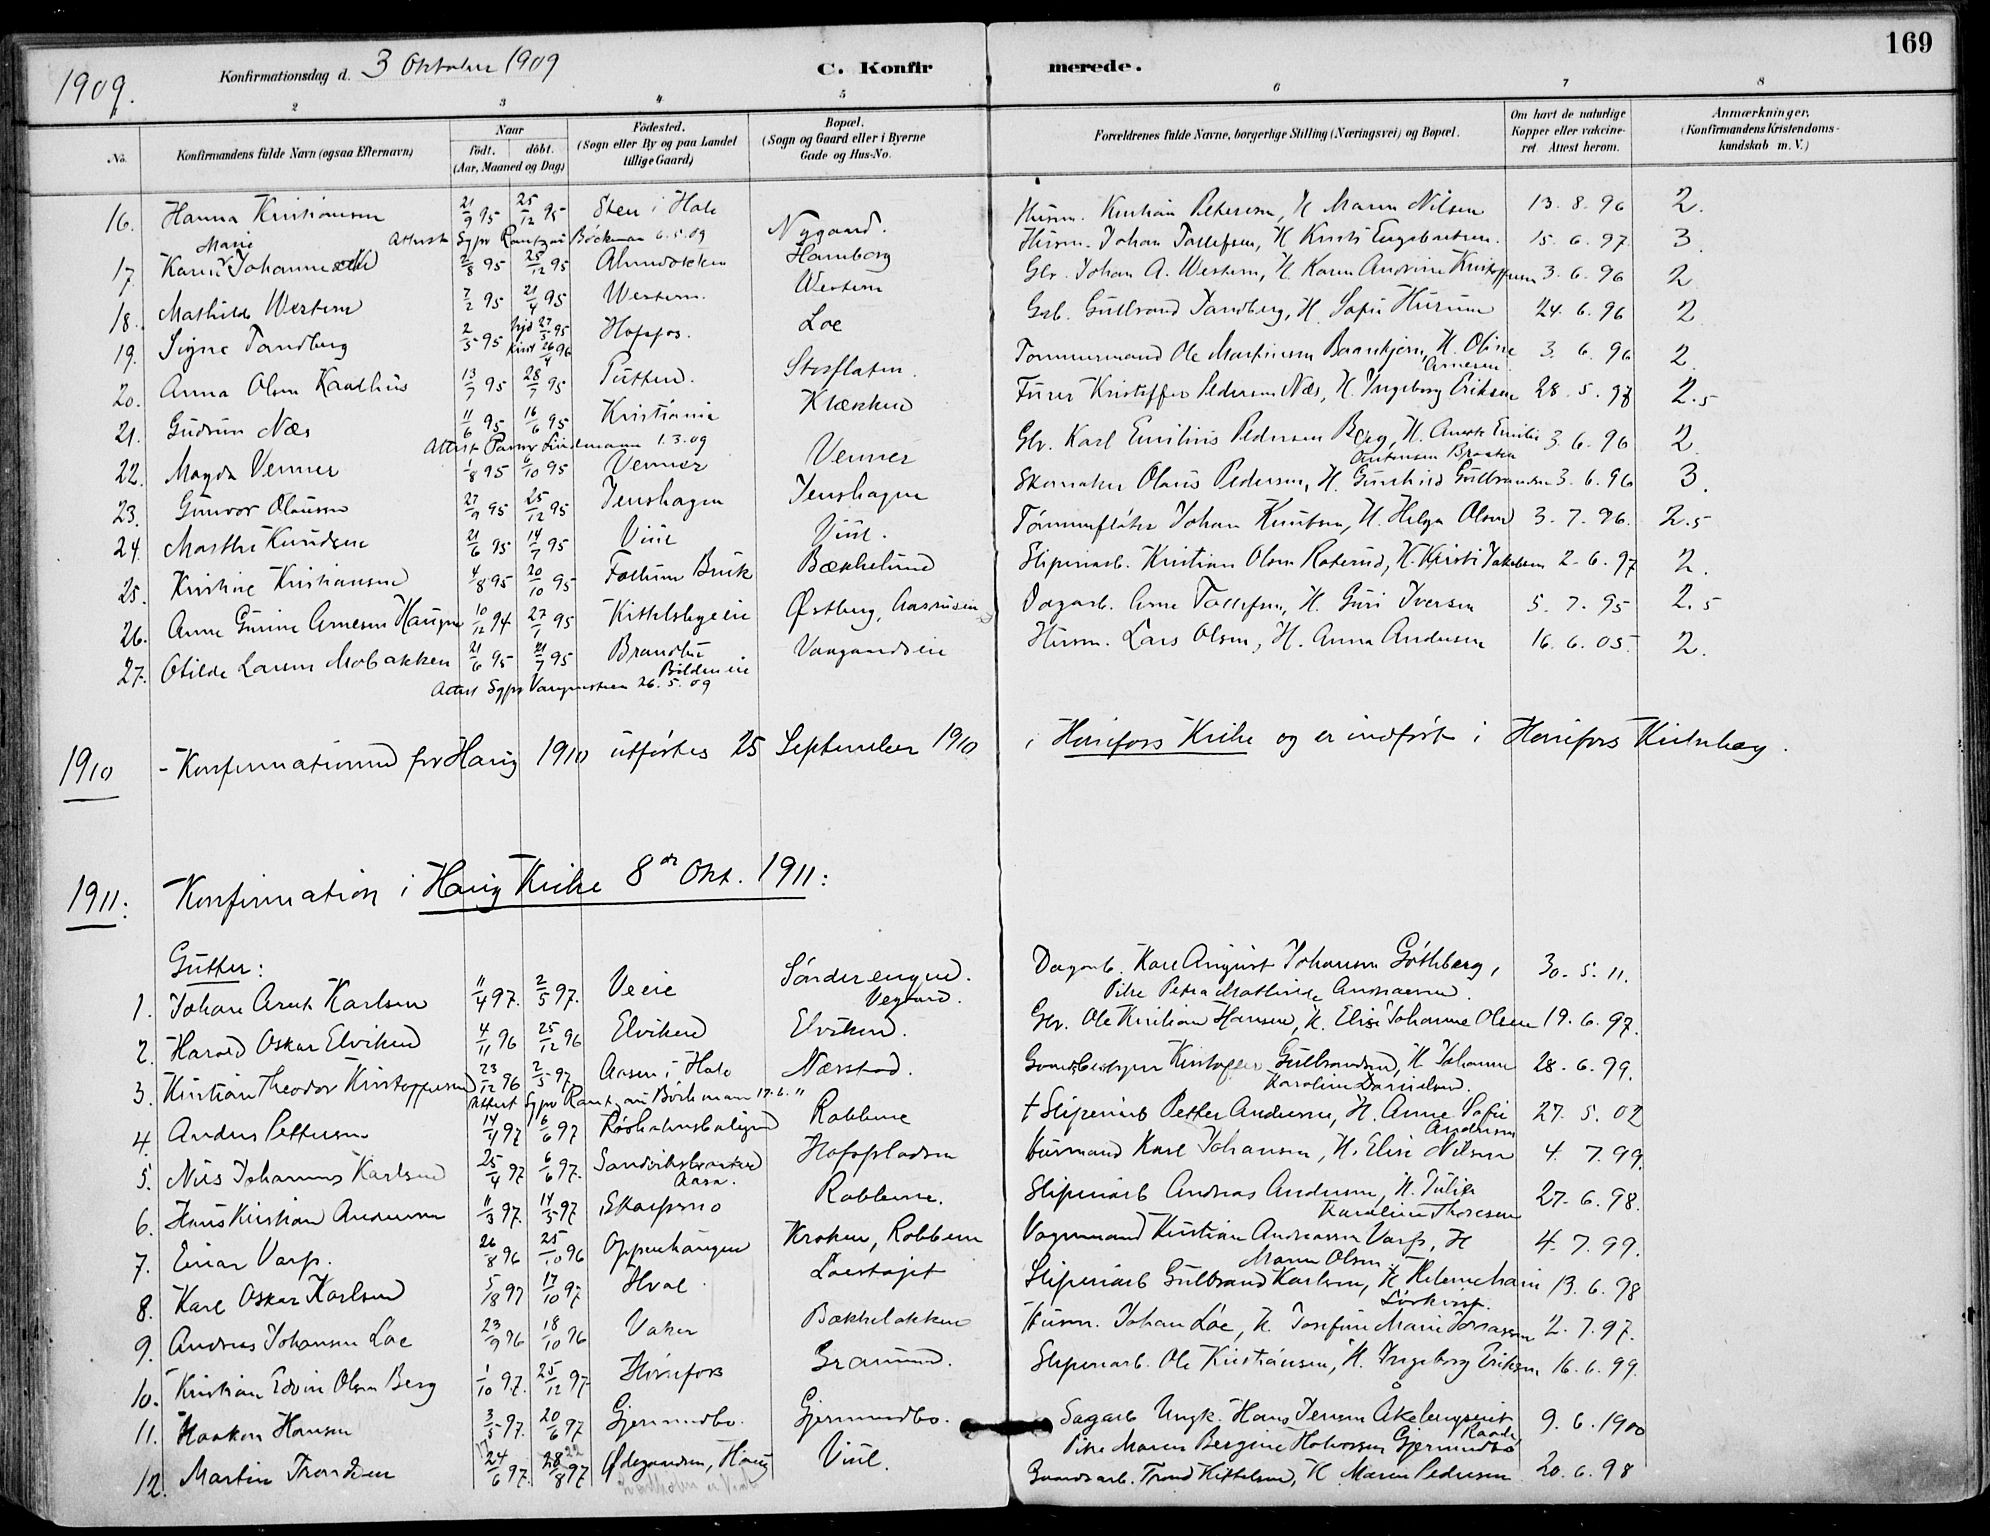 169
1909. Konfirmationsdag d. 3 Oktober 1909 C. Konfir merede.
2 3 4 5 6 7 8
No. Konfirmandens fulde Navn (ogsaa Efternavn) Naar födt. döbt. (Aar, Maaned og Dag) Födested. (Sogn eller By og paa Landet tillige Gaard) Bopæl. (Sogn og Gaard eller i Byerne Gade og Hus-No. Forældrenes fulde Navne, borgerlige Stilling (Næringsvei) og Bopæl. Om havt de naturlige Kopper eller vakcineret. Attest herom. Anmærkninger. (Konfirmandens Kristendomskundskab m. V.)
16. Hanna Kristiansen 21/9 95 25/12 95 Sten i Hole Nygaard. Husm. Kristian Petersen, H. Maren Nilsen 13. 8. 96 2.
Attest Sgpr Rantzau Böckman 6.5.09
17. Karen Marie Johannesen 2/8 95 25/12 95 Almedokken Hamborg Husm. Johan Tollefsen, H. Kristi Engebretsen. 15. 6. 97. 3.
18. Mathilde Western 7/2 95 21/4 95 Western. Western Gbr. Johan A. Western, H. Karen Andrine Kristoffersen 3. 6. 96 2
19. Signe Tandberg 2/5 95 hjd 27/5 95 Kirst 26/4 96 Hofsfos. Loe Gsb. Gulbrand Tandberg, H. Sofie Hurum 24. 6. 96 2
20. Anna Olsen Kaadhus 13/7 95 28/7 95 Putten. Storflaten. Tömmermand Ole Martinsen Baankjern, H. Oline Arnesen 3. 6. 96 2
21. Gudrun Næs 11/6 95 16/6 95 Kristiania Klækken Furer Kristoffer Pedersen Næs, H. Ingeborg Eriksen 28. 5. 98 2.5
Attest Pastor Lindemann 1.3.09
22. Magda Venner 1/8 95 6/10 95 Venner Venner Gbr. Karl Emilius Pedersen Berg, H. Anette Emilie Antonsen Braaten 3. 6. 96 2
23. Gunvor Olausen 27/9 95 25/12 95 Jenshagen Jenshagen Skomaker Olaus Pedersen, H. Gunhild Gulbrandsen 3. 6. 96 3.
24. Marthe Knudsen 21/6 95 14/7 95 Viul Viul. Tömmerflöter Johan Knutsen, H. Helga Olsen 3. 7. 96. 2.5
25. Kristine Kristiansen 4/8 95 20/10 95 Follum Bruk Bækkelund Sliperiarb. Kristian Olsen Roterud, H. Kristi Jakobsen 2. 6. 97 2.
26. Anne Gurine Arnesen Haugen 10/12 94 27/1 95 Kittelsbyeie Østberg, Aasrudeie Dagarb. Arne Tollefsen, H. Guri Iversen 5. 7. 95 2.5
27. Otilde Larsen Mobakken 21/6 95 21/7 95 Brandlie Bildeneie Vaagaardseie Husm. Lars Olsen, H. Anna Andersen 16. 6. 05. 2.
Attest Sgpr 26. 5. 09
1910 - Konfirmationen for Haug 1910 utförtes 25 September 1910 i Hönefors Kirke og er indfört i Hönefors Kirkebog.
1911: Konfirmation i Haug Kirke 8de Okt. 1911:
Gutter:
1. Johan Arnt Karlsen 11/4 97. 2/5 97. Veeie Sönderengen. Vegaard. Dagarb. Karl August Johansen Göthberg, Pike Petra Mathilde Andreassen. 30. 5. 11.
2. Harald Oskar Elviken 4/11 96 25/12 96 Elviken Elviken. Gbr. Ole Kristian Hansen, H. Elise Johanne Olsen 19. 6. 97.
3. Kristian Theodor Kristoffersen 23/12 96 2/5 97 Aasen i Hole Nærstad. Gaardbestyrer Kristoffer Gulbrandsen, H. Johanne Karoline Danielsen. 28. 6. 99.
Attest Sgpr Rantzau Böckman 17.6."
4. Anders Pettersen 14/4 97 6/6 97 Robbene † Sliperiarb Petter Andersen, H. Anne Sofie Andersen 27. 5. 02
5. Nils Johannes Karlsen 25/4 97 6/6 97. Sandvikbraaten Aasa. Hofspladsen Husmand Karl Johansen, H. Elise Nilsen 4. 7. 99.
6. Hans Kristian Andersen 11/3 97. 14/5 97 Skarpsno Robbene. Sliperiarb Andreas Andersen, H. Julie Karoline Thoresen 27. 6. 98.
7. Einar Varp. 26/8 96 25/10 96 Oppenhaugen Kroken, Robben Vognmand Kristian Andreassen Varp, H Maren Olsen 4. 7. 99.
8. Karl Oskar Karlsen 5/18 97 17/10 97 Hval. Loeshøgst Sliperiarb Gulbrand Karlsen, H. Helene Marie 13. 6. 98
9. Andreas Johansen Loe 23/9 96 18/10 96 Vaker Bakkelokken Husm. Johan Loe, H. Josefine Marie Tomassen 2. 7. 97.
10. Kristian Edvin Olsen Berg 1/10 97. 25/12 97 Hönefors Granum. Sliperiarb. Ole Kristiansen, H. Ingeborg Eriksen 16. 6. 99.
11. Haakon Hansen 3/5 97. 20/6 97 Gjermundbo. Gjermundbo. Sagarb Ungk. Hans Jensen Åkebergseiet Raade, Pike Maren Bergine Halvorsen Gjermundbo 9. 6. 1900
12. Martin Trondsen 17 24/6 97. 22 28/8 97 Ødegaarden, Haug Viul. Gaardsarb. Trond Kittelsen, H. Maren Pedersen 20. 6. 98